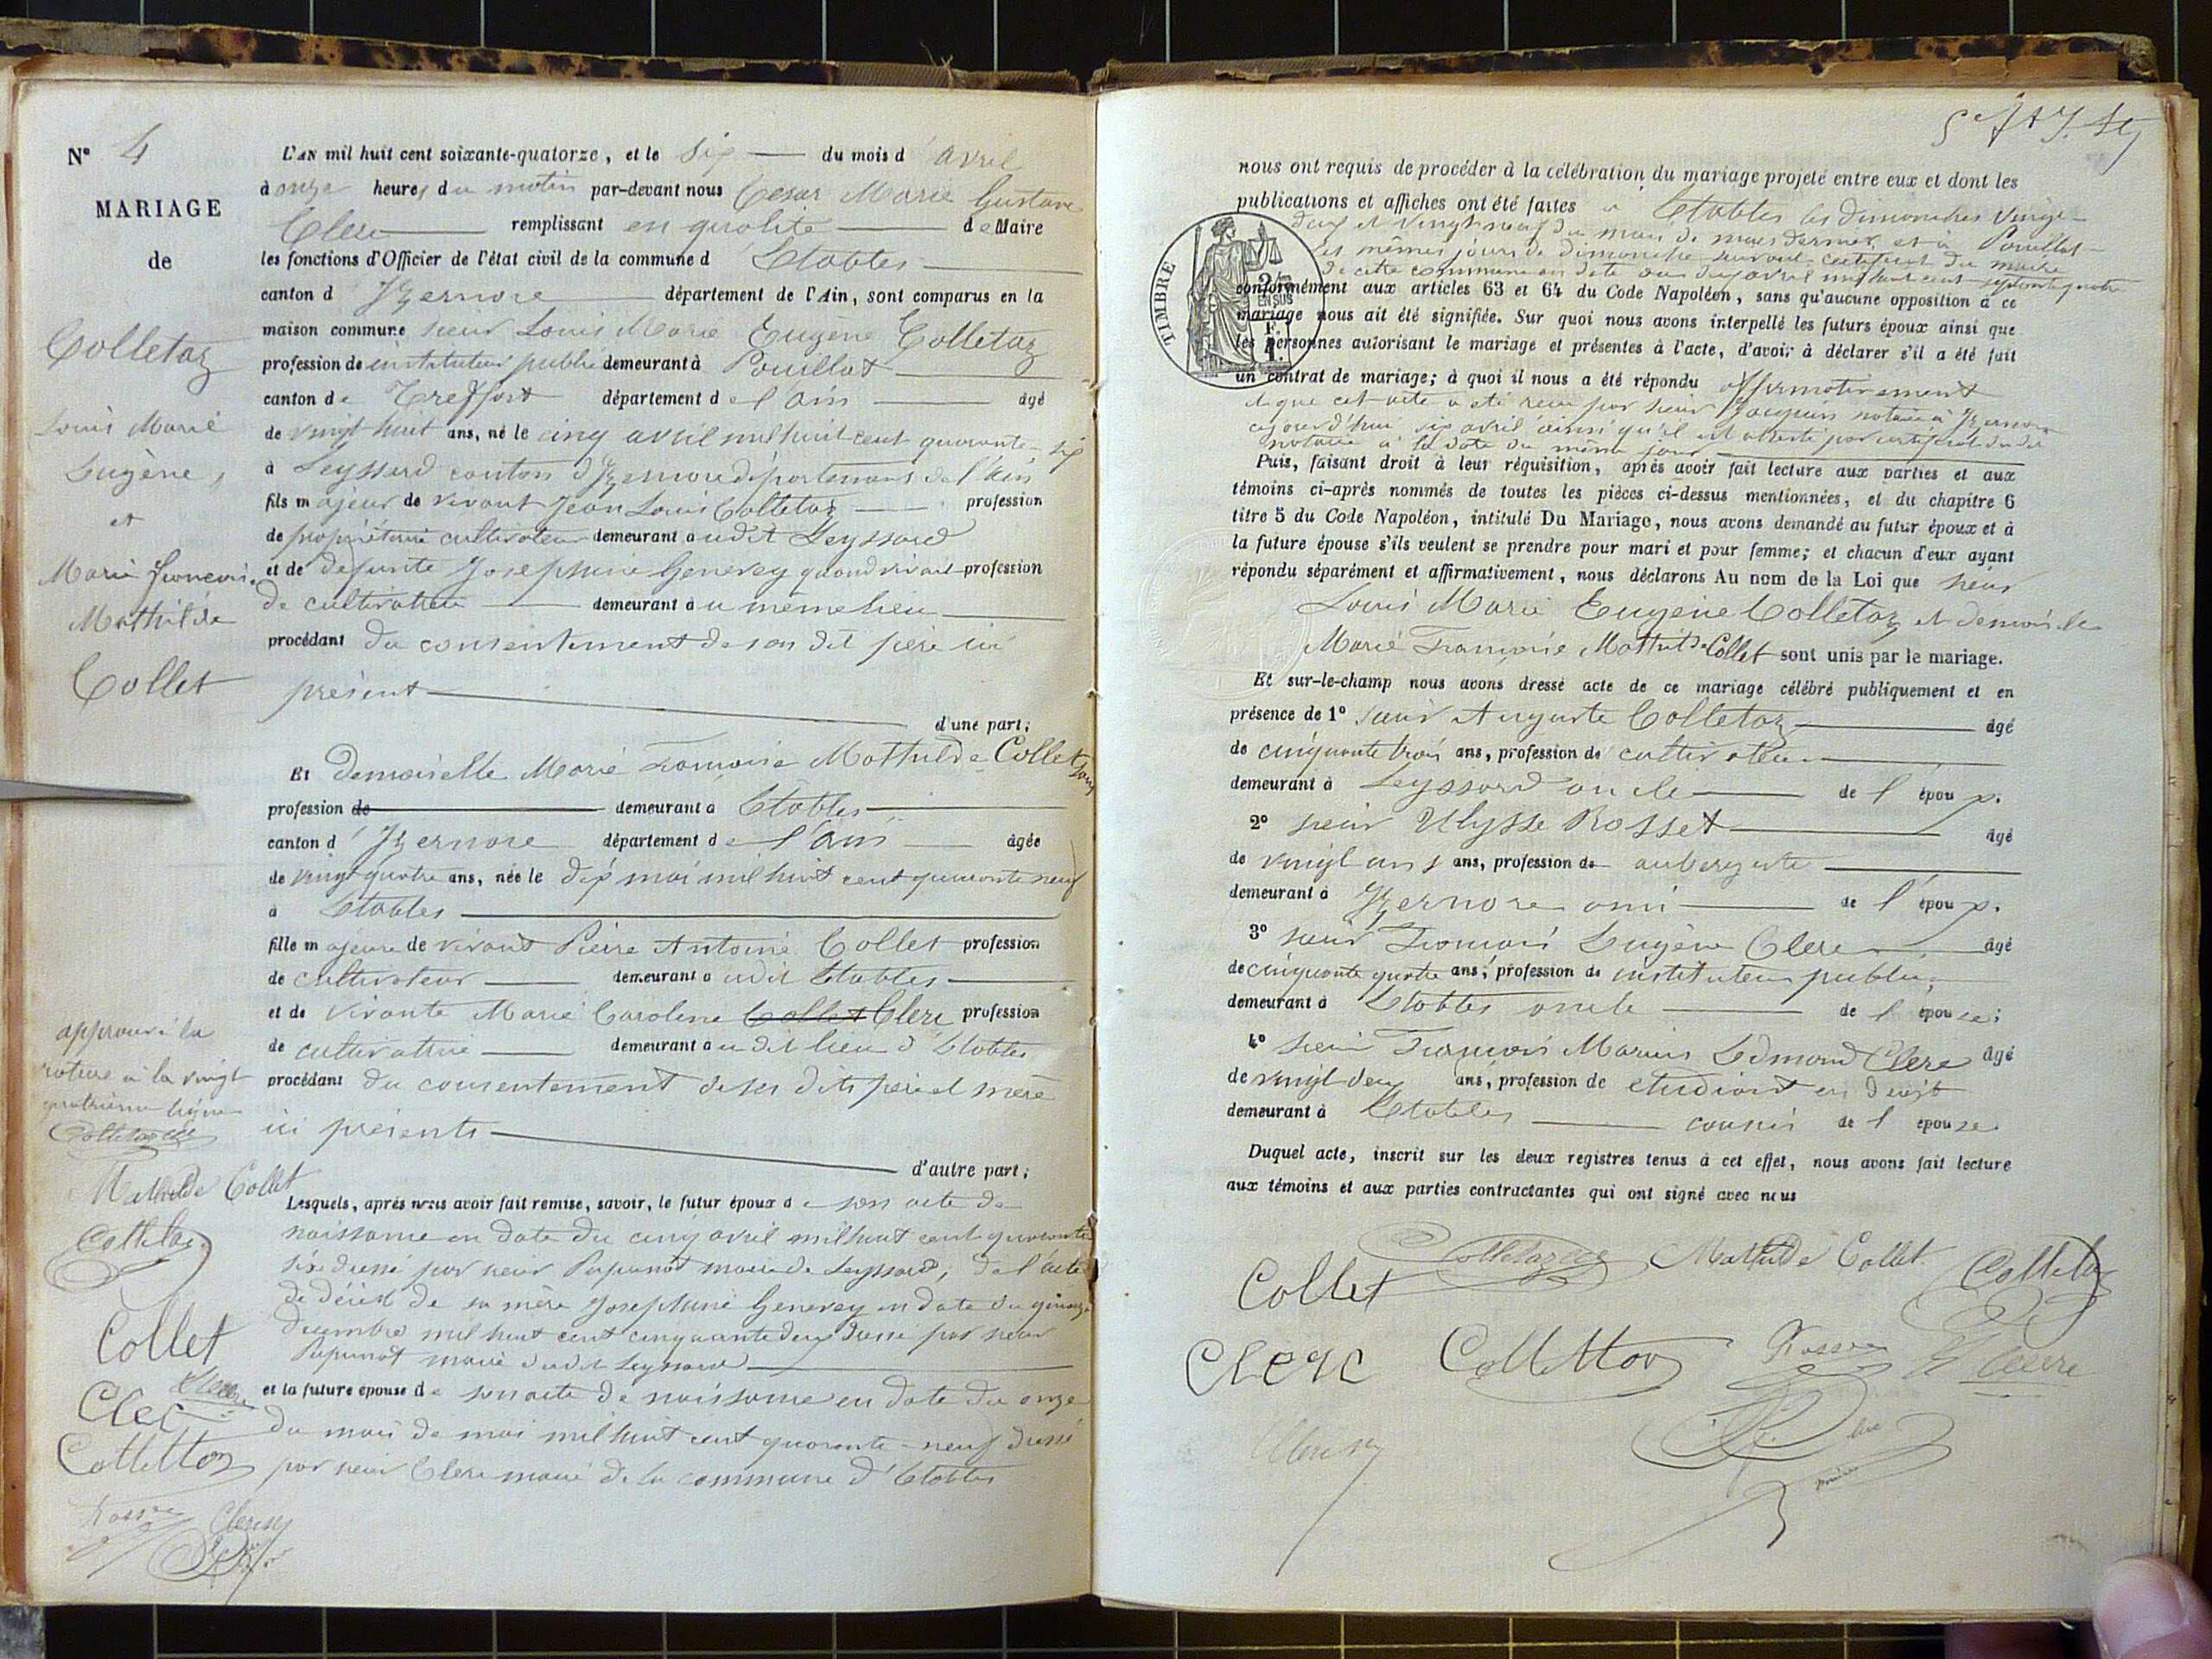 N° 4
MARIAGE
de
Colletaz
Louis Marie
Eugène,
et
Marie Francoise
Mathilde
Collet
approuvé la
rature à la vingt
quatrième ligne
Mathilde Collet
Colletaz
Collet
Clerc
Colletton
Rosset
L'AN mil huit cent soixante-quatorze, et le six du mois d'avril
à onze heures du matin par-devant nous Cesar Marie Gustave
Clerc remplissant en qualité de Maire
les fonctions d'Officier de l'état civil de la commune d'Etables
canton d'Izernore département de l'Ain, sont comparus en la
maison commune sieur Louis Marie Eugène Colletaz
profession de instituteur public demeurant à Pouillat
canton de Treffort département de l'ain âgé
de vingt huit ans, né le cinq avril mil huit cent quarante-six
à Leyssard canton d'Izernore département de l'ain
fils majeur de vivant Jean Louis Colletaz profession
de propriétaire cultivateur demeurant audit Leyssard
et de defunte Josephine Genevey quand vivait profession
de cultivatrice demeurant au même lieu
procédant du consentement de son dit père ici
présent
d'une part;
Et demoiselle Marie Francoise Mathilde Collet sans
profession de demeurant à Etables
canton d'Izernore département de l'ain âgée
de vingt quatre ans, née le dix mai mil huit cent quarante neuf
à Etables
fille majeure de vivant Pierre Antoine Collet profession
de cultivateur demeurant audit Etables
et de vivante Marie Caroline Collet Clerc profession
de cultivatrice demeurant audit lieu d'Etables
procédant du consentement de ses dits père et mère
ici présents
d'autre part;
Lesquels, après nous avoir fait remise, savoir, le futur époux de son acte de
naissance en date du cinq avril mil huit cent quarante
six dressé par sieur maire de Leyssard, de l'acte
de décès de sa mère Josephine Genevey en date du quinze
decembre mil huit cent cinquante deux dressé par sieur
maire dudit Leyssard
et la future épouse de son acte de naissance en date du onze
du mois de mai mil huit cent quarante-neuf dressé
par sieur Clerc maire de la commune d'Etables
nous ont requis de procéder à la célébration du mariage projeté entre eux et dont les
publications et affiches ont été faites à Etables les dimanches vingt-
deux et vingt neuf du mois de mars dernier et à Pouillat
les mêmes jours de dimanche suivant certificat du maire
de cette commune en date du avril mil huit cent septante quatre
conformément aux articles 63 et 64 du Code Napoléon, sans qu'aucune opposition à ce
mariage nous ait été signifiée. Sur quoi nous avons interpellé les futurs époux ainsi que
les personnes autorisant le mariage et présentes à l'acte, d'avoir à déclarer s'il a été fait
un contrat de mariage; à quoi il nous a été répondu affirmativement
et que cet acte a été recu par sieur notaire à Izernore
cejourd'hui six avril ainsi qu'il est attesté par certificat dudit
notaire à la date du même jour
Puis, faisant droit à leur réquisition, après avoir fait lecture aux parties et aux
témoins ci-après nommés de toutes les pièces ci-dessus mentionnées, et du chapitre 6
titre 5 du Code Napoléon, intitulé Du Mariage, nous avons demandé au futur époux et à
la future épouse s'ils veulent se prendre pour mari et pour femme; et chacun d'eux ayant
répondu séparément et affirmativement, nous déclarons Au nom de la Loi que sieur
Louis Marie Eugène Colletaz et demoiselle
Marie Françoise Mathilde Collet sont unis par le mariage.
Et sur-le-champ nous avons dressé acte de ce mariage célébré publiquement et en
présence de 1° sieur Auguste Colletaz âgé
de cinquante trois ans, profession de cultivateur
demeurant à Leyssard oncle de l'époux.
2° sieur Ulysse Rosset âgé
de vingt ans, profession de aubergiste
demeurant à Izernore ami de l'époux.
3° sieur Francois Eugène Clerc âgé
de cinquante quatre ans, profession de instituteur public,
demeurant à Etables oncle de l'épouse;
4° sieur François Marius Edmond Clerc âgé
de vingt deux ans, profession de étudiant en droit
demeurant à Etables cousin de l'épouse
Duquel acte, inscrit sur les deux registres tenus à cet effet, nous avons fait lecture
aux témoins et aux parties contractantes qui ont signé avec nous
Collet Mathilde Collet Colletaz
Clerc Colletton Rosset
TIMBRE
2/10
EN SUS